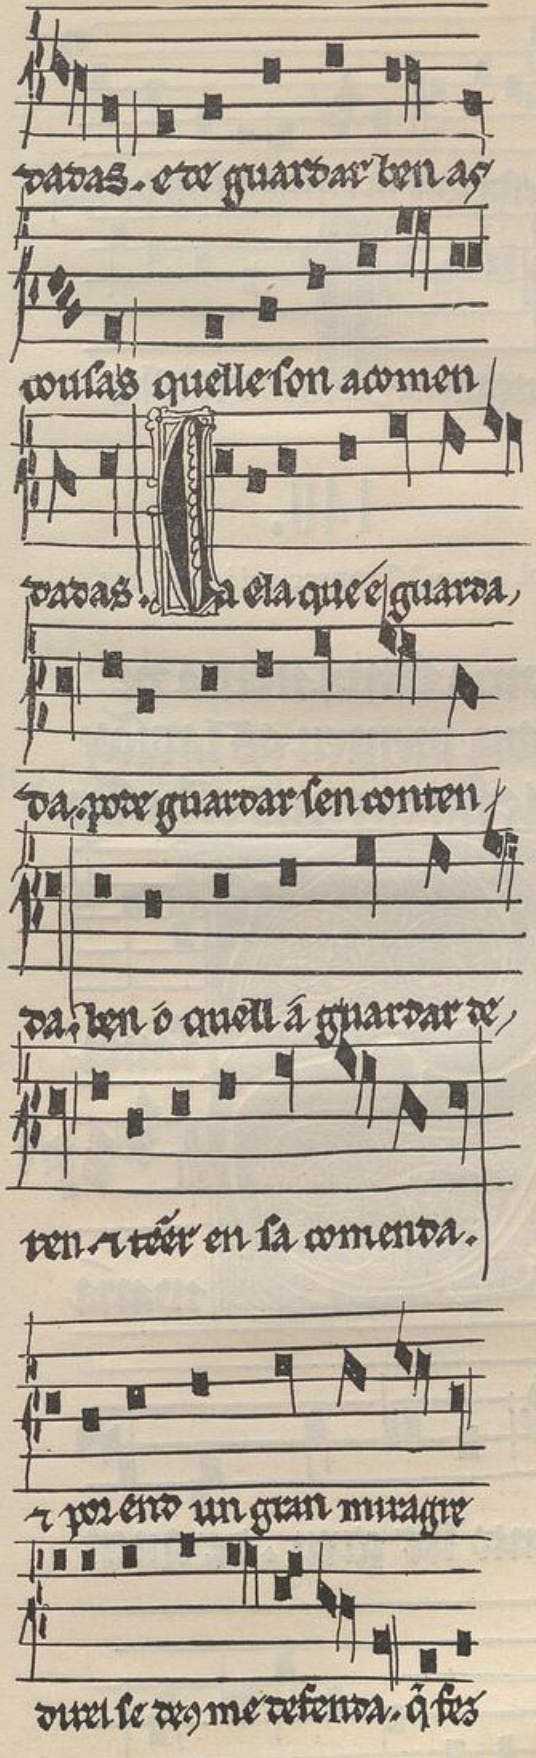 dadas. e de guardar ben as
cousas quelle son acomen
dadas. Ca ela que é guarda,
da. pode guardar sen conten
da. ben ó quell á guardar de,
ren. ⁊ tẽer en sa comenda.
⁊ por end un gran miragre
direi se deꝯ me defenda. q̃ fez